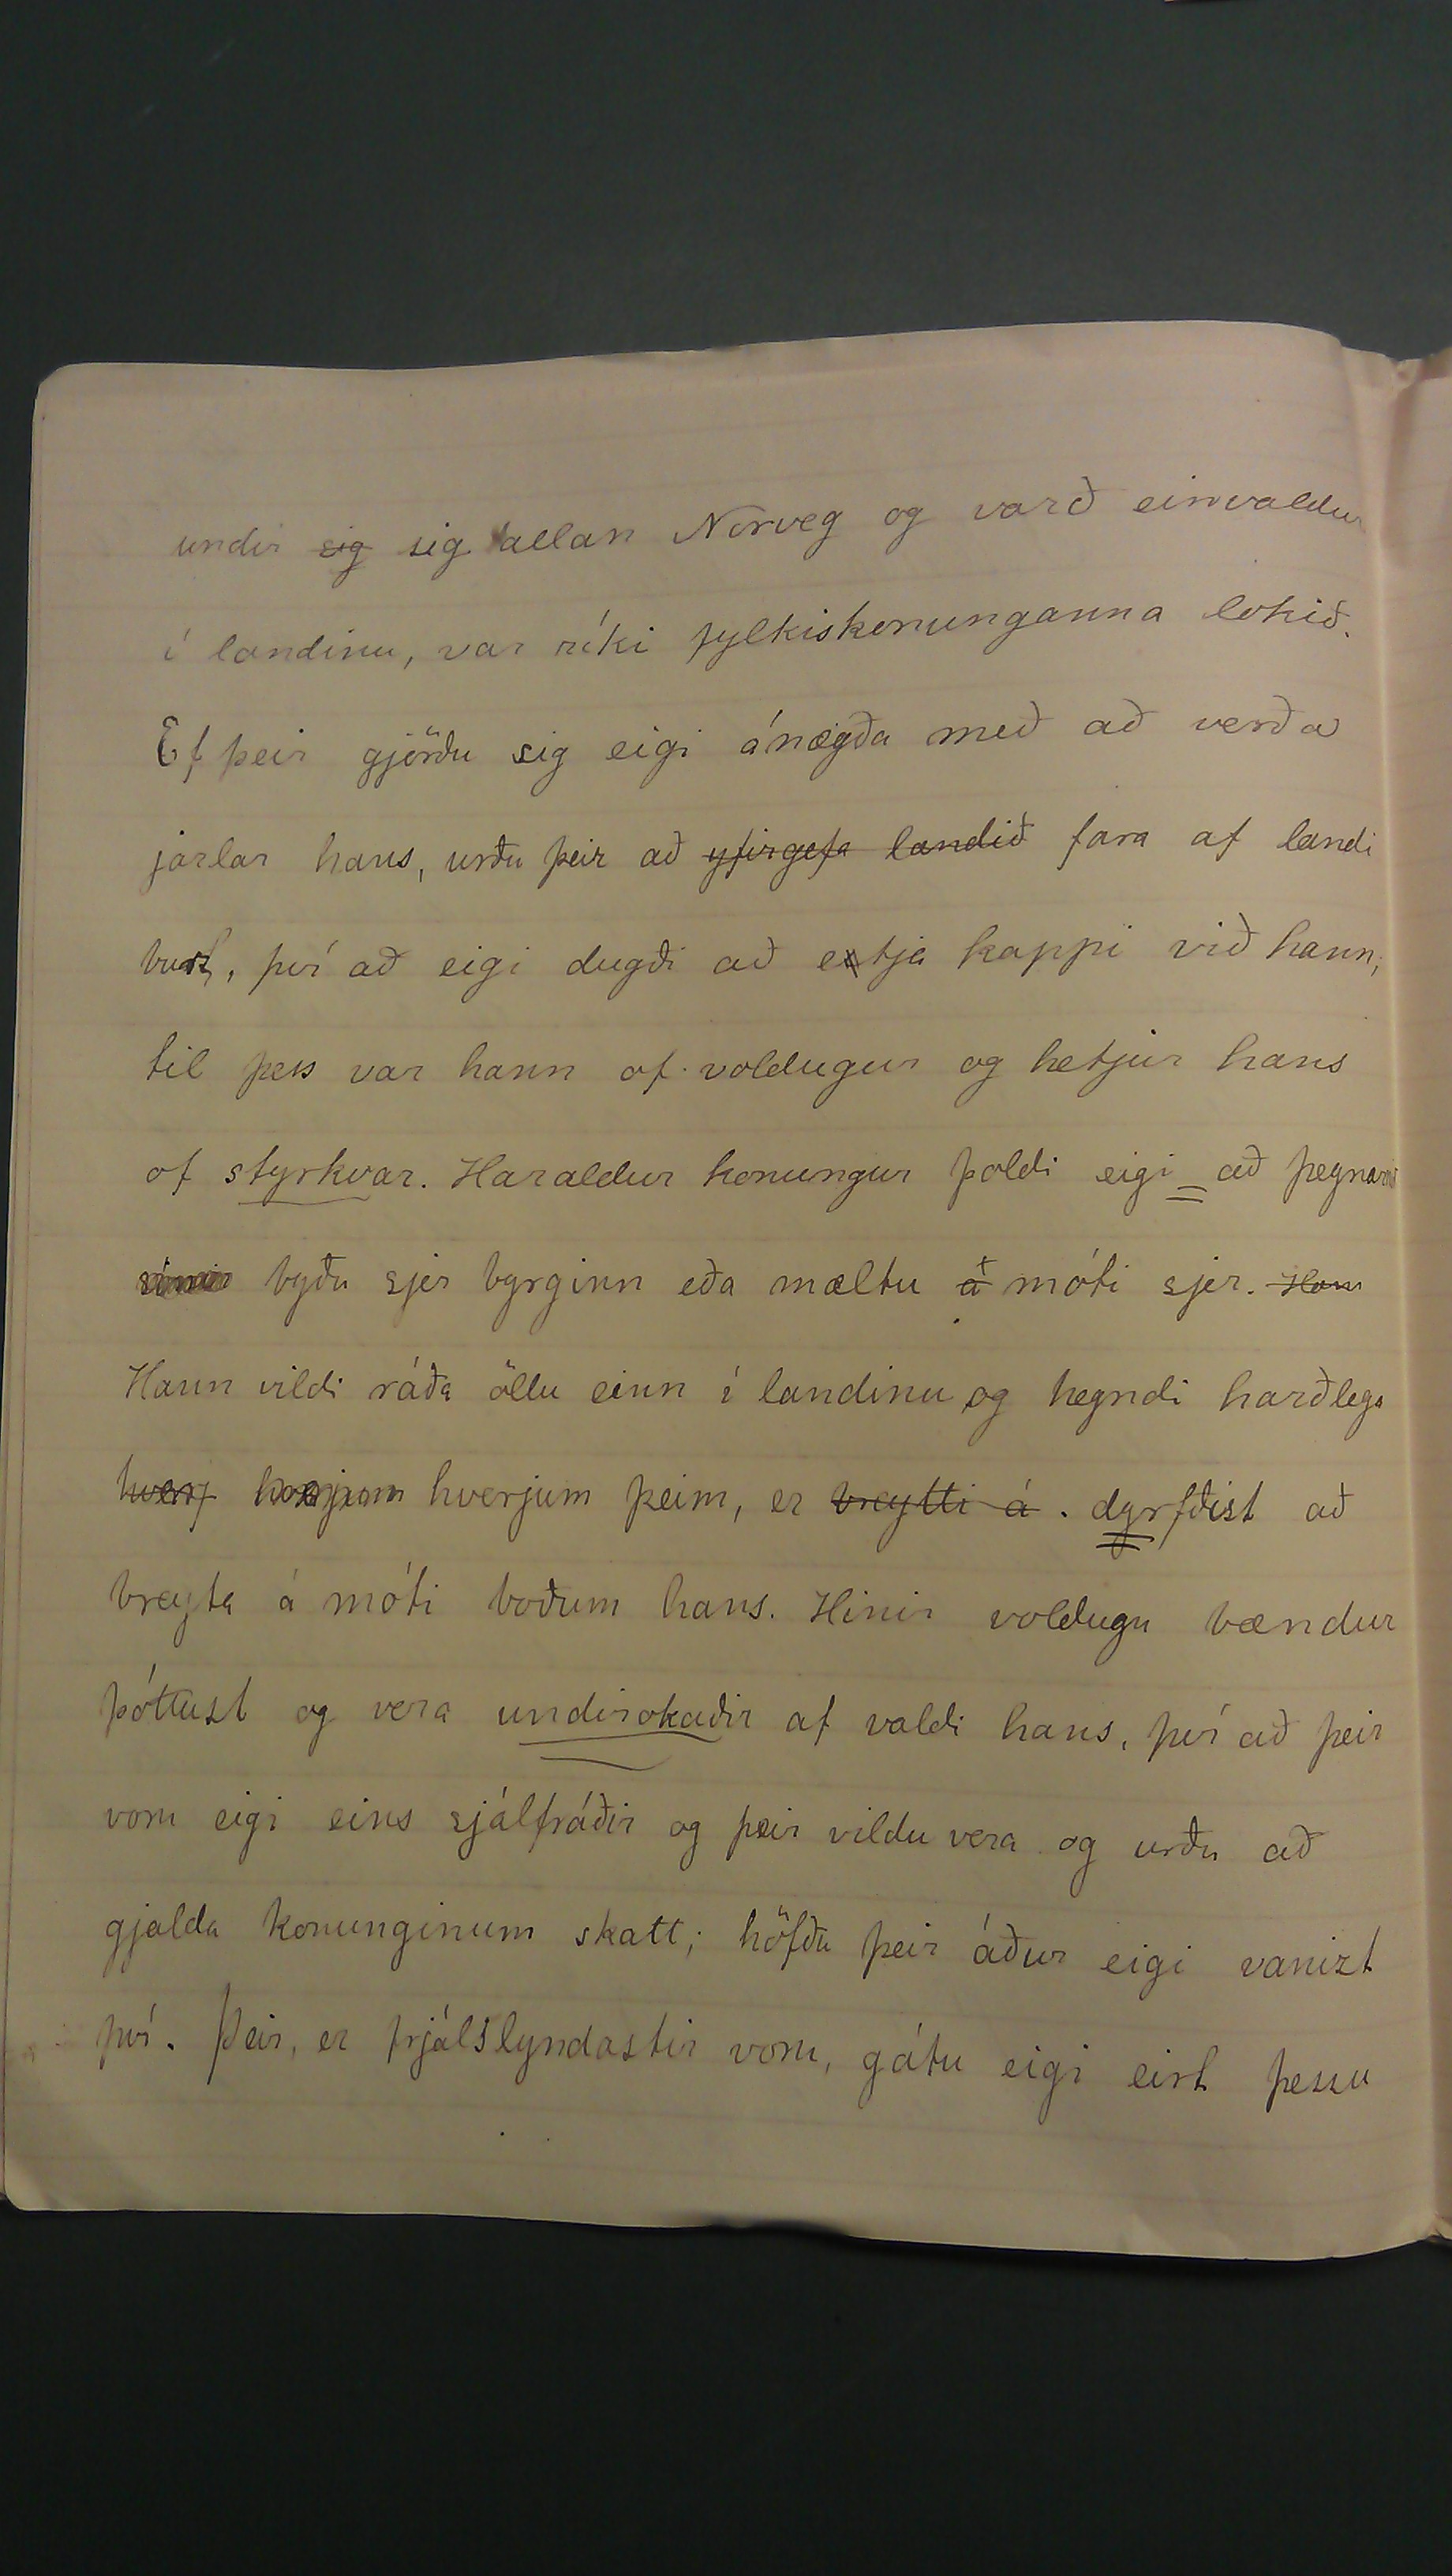 undir sig sig allan Norveg og varð einvaldur
í landinu, var ríki fylkiskonunganna lokið.
Ef þeir gjörðu sig eigi ánægða með að verða
jarlar hans, urðu þeir að yfirgefa landið fara af landi
burt, því að eigi dugði að etja kappi við hann;
til þess var hann of voldugur og hetjur hans
of styrkvar. Haraldur konungur þoldi eigi að þegnarnir
sínir byðu sjer byrginn eða mæltu á móti sjer. Hann
Hann vildi ráða öllu einn í landinu og hegndi harðlega
hverj hverjum hverjum þeim, er breytti á . dyrfðist að
breyta á móti boðum hans. Hinir voldugu bændur
þóttust og vera undirokaðir af valdi hans, því að þeir
voru eigi eins sjálfráðir og þeir vildu vera og urðu að
gjalda konunginum skatt; höfðu þeir áður eigi vanizt
því. Þeir, er frjálslyndastir voru, gátu eigi eirt þessu